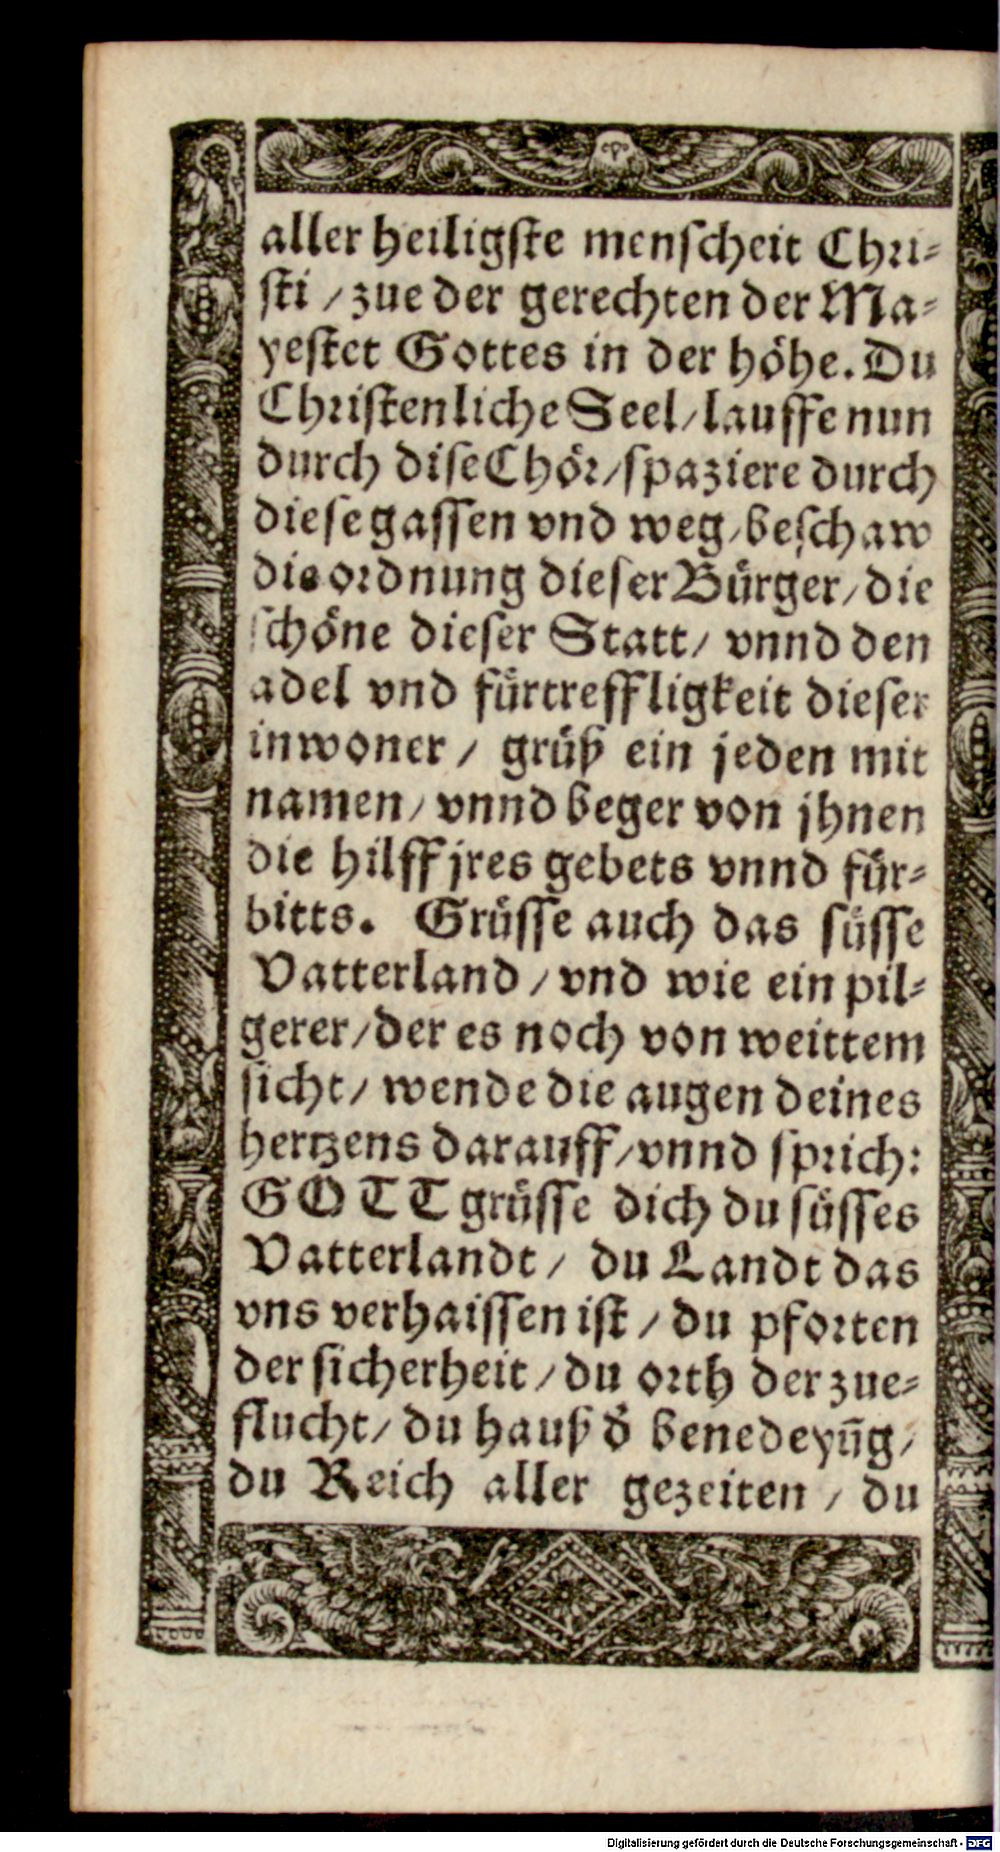 aller heiligſte menſcheit Chri⸗
ſti / zue der gerechten der Ma⸗
yeſtet Gottes in der höhe. Du
Chriſtenliche Seel / lauffe nun
durch diſe Chör / ſpaziere durch
dieſe gaſſen vnd weg / beſchaw
die ordnung dieſer Bürger / die
ſchöne dieſer Statt / vnnd den
adel vnd fürtreffligkeit dieſer
inwoner / grüß ein jeden mit
namen / vnnd beger von jhnen
die hilff jres gebets vnnd für⸗
bitts. Grüſſe auch das ſüſſe
Vatterland / vnd wie ein pil⸗
gerer / der es noch von weittem
ſicht / wende die augen deines
hertzens darauff / vnnd ſprich:
GOTT grüſſe dich du ſüſſes
Vatterlandt / du Landt das
vns verhaiſſen iſt / du pforten
der ſicherheit / du orth der zue⸗
flucht / du hauß d̕ benedeyūg /
du Reich aller gezeiten / du
Digitalisierung gefördert durch die Deutsche Forschungsgemeinschaft - DFG